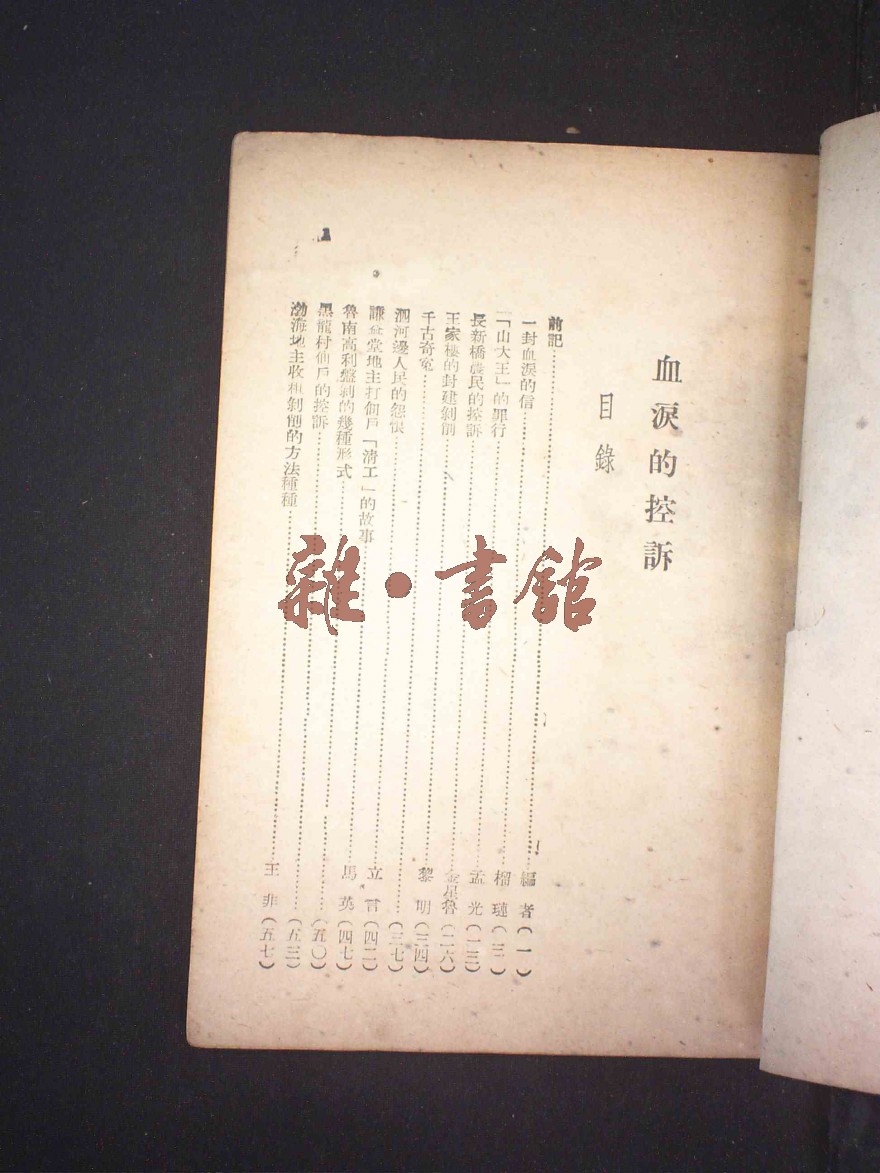 血淚的控訴
目錄
前記……編者(一)
一封血淚的信……榴璉(三)
「山大王」的罪行……孟光(一三)
長新橋農民的控訴……金星魯(二六)
王家樓的封建剝削……黎明(三四)
千古奇冤……(三七)
泗河邊人民的怨恨……立言(四二)
謙益堂地主打佃戶「清工」的故事……馬英(四七)
魯南高利盤剝的幾種形式……(五〇)
黑龍村佃戶的控訴……(五三)
渤海地主收租剝削的方法種種……王非(五七)
雜·書館